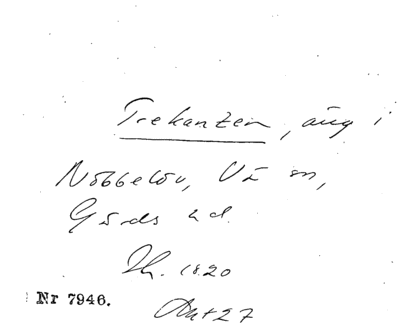 Trekanten, äng i
Nöbbelöv, Vä sn,
Gärds hd.
Sk. 1820
Nr 7946.